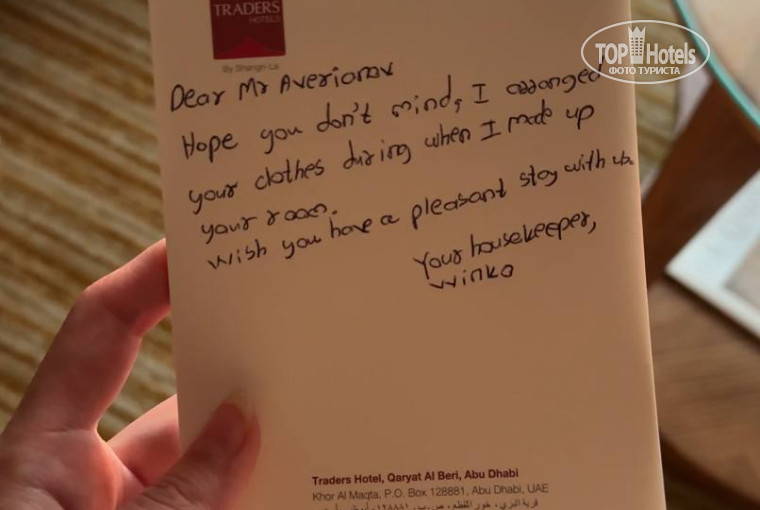 TRADERS
HOTELS
By Shangri-La
TOP Hotels
ФОТО ТУРИСТА
Dear Mr Averionov
Hope you don't mind, I arranged
your clothes during when I made up
your room.
Wish you have a pleasant stay with us.
Your housekeeper,
Winka
Traders Hotel, Qaryat Al Beri, Abu Dhabi
Khor Al Maqta, P.O. Box 128881, Abu Dhabi, UAE
قرية البري، خور المقطع، ص.ب. ١٢٨٨٨١،